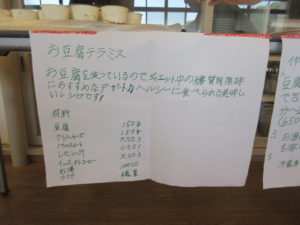 お豆腐テラミス
お豆腐を使っているのでダイエット中の糖質制限時
におすすめなデザート♪ヘルシーに食べられる美味し
いレシピです!
材料
豆腐 150g
クリームチーズ 150g
大さじ3
レモン汁 小さじ1
インスタントコーヒー 大さじ3
お湯 100cc
ココア 適量